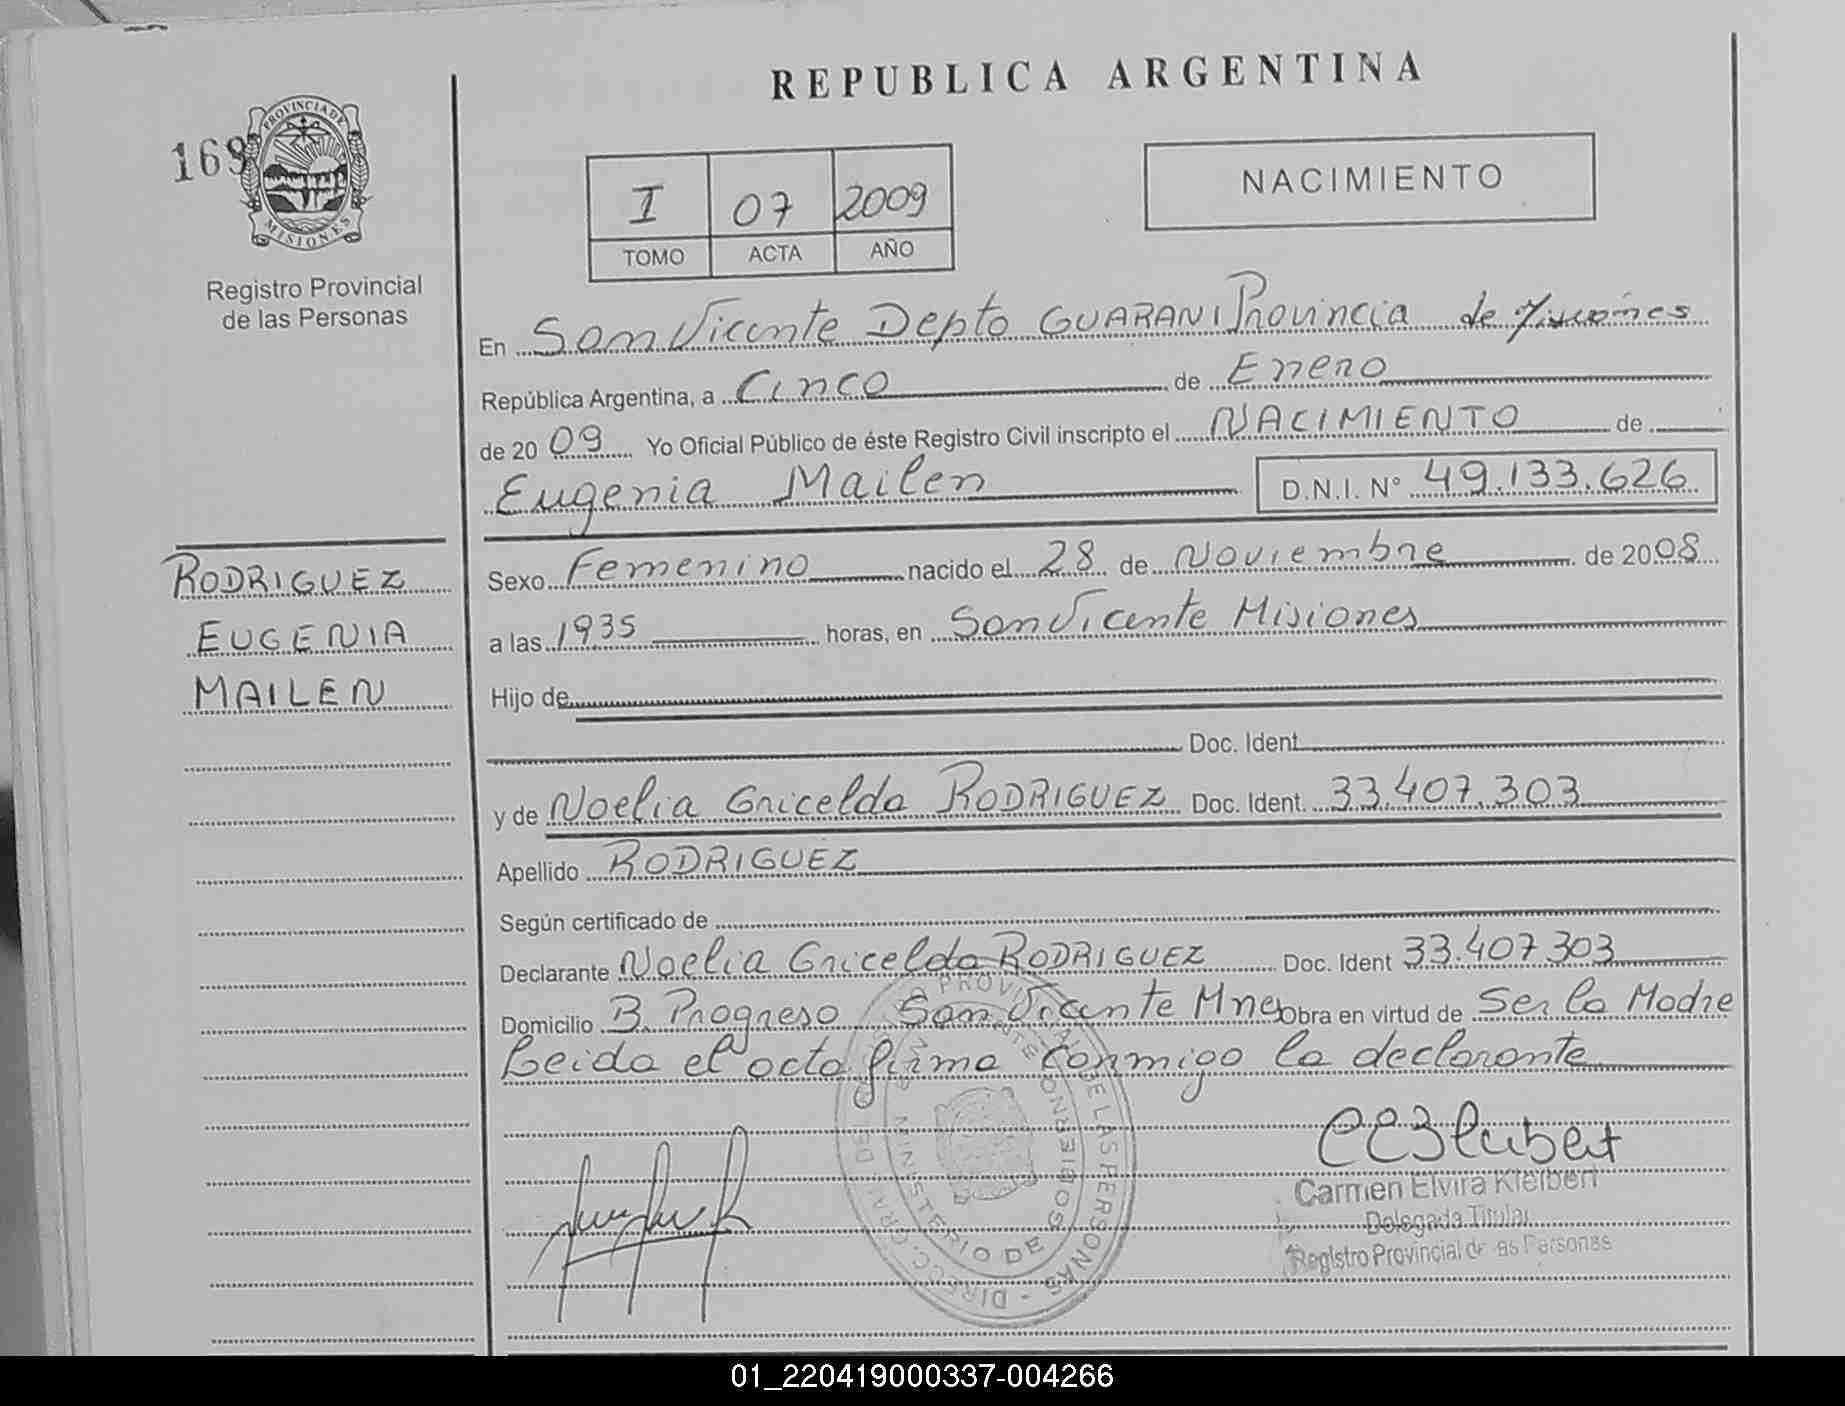 REPUBLICA ARGENTINA
169
PROVINCIA DE
MISIONES
Registro Provincial
de las Personas
I 07 2009
TOMO ACTA AÑO
NACIMIENTO
En San Vicente Depto GUARANI Provincia de Misiones
República Argentina, a Cinco de Enero
de 2009 Yo Oficial Público de éste Registro Civil inscripto el NACIMIENTO de
Eugenia Mailen D.N.I. N° 49.133.626
RODRIGUEZ
EUGENIA
MAILEN
Sexo Femenino nacido el 28 de Noviembre de 2008
a las 1935 horas, en San Vicente Misiones
Hijo de
Doc. Ident.
y de Noelia Gricelda RODRIGUEZ Doc. Ident. 33.407.303
Apellido RODRIGUEZ
Según certificado de
Declarante Noelia Gricelda RODRIGUEZ Doc. Ident 33.407.303
Domicilio B. Progreso San Vicente Mnes Obra en virtud de Ser la Madre
Leida el acta firma conmigo la declarante
MINISTERIO DE GOBIERNO
DE LAS PERSONAS - DIRECC. GRAL. DEL
Carmen Elvira Kleibert
Delegada Titular
Registro Provincial de las Personas
01_220419000337-004266